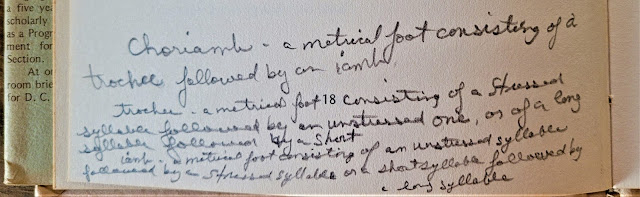 a five yea
scholarly
as a Progr
ment for
Section.
At on
room brie
for D. C.
Choriamb - a metrical foot consisting of a
trochee followed by an iamb.
trochee - a metrical foot 18 consisting of a stressed
syllable followed by an unstressed one, or of a long
syllable followed by a short
iamb - a metrical foot consisting of an unstressed syllable
followed by a stressed syllable or a short syllable followed by
a long syllable